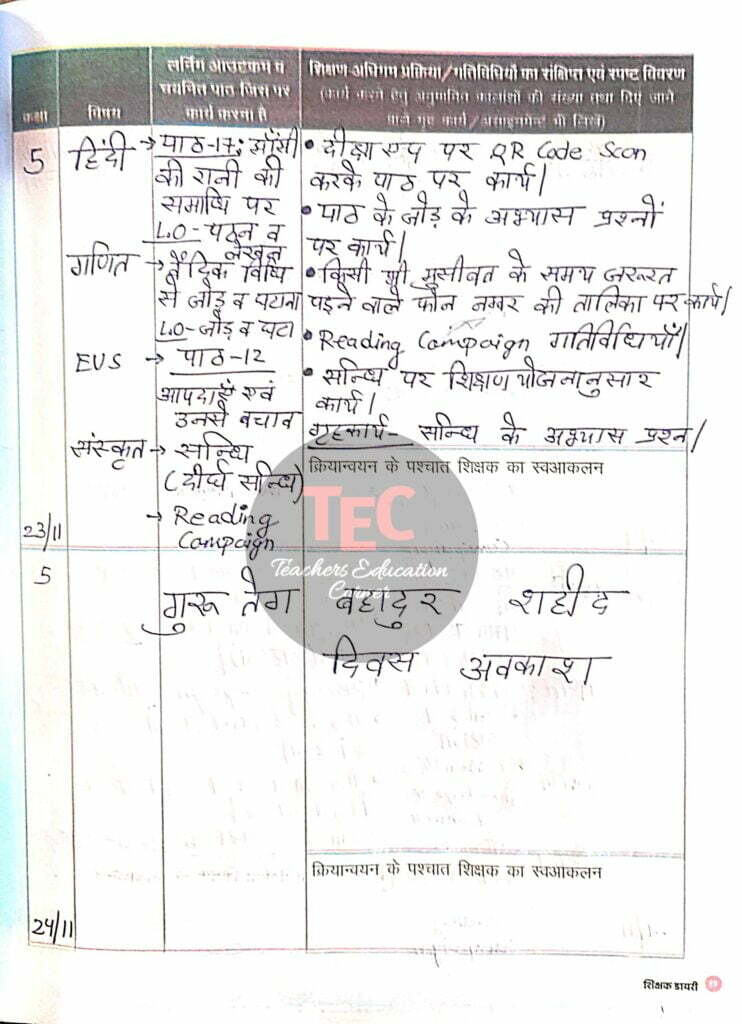 कक्षा
विषय
लर्निंग आउटकम व
चयनित पाठ जिस पर
कार्य करना है
शिक्षण-अधिगम प्रक्रिया/गतिविधियों का संक्षिप्त एवं स्पष्ट विवरण
(कार्य करने हेतु अनुमानित कालांशों की संख्या तथा दिए जाने
वाले गृह कार्य/असाइनमेन्ट भी लिखें)
5
हिंदी
→ पाठ-17: झाँसी
की रानी की
समाधि पर
LO- पठन व
लेखन
गणित
→ वैदिक विधि
से जोड़ व घटाना
LO- जोड़ व घटा
EVS
→ पाठ-12
आपदाएँ एवं
उनसे बचाव
संस्कृत
→ सन्धि
(दीर्घ सन्धि)
→ Reading
Campaign
23/11
• दीक्षा एप पर QR Code Scan
करके पाठ पर कार्य।
• पाठ के जोड़ के अभ्यास प्रश्नों
पर कार्य।
• किसी भी मुसीबत के समय जरूरत
पड़ने वाले फोन नम्बर की तालिका पर कार्य।
• Reading Campaign गतिविधियाँ।
• सन्धि पर शिक्षण योजनानुसार
कार्य।
गृहकार्य- सन्धि के अभ्यास प्रश्न।
क्रियान्वयन के पश्चात शिक्षक का स्वआकलन
TEC
Teachers Education
Corner
5
गुरू तेग बहादुर शहीद
दिवस अवकाश
क्रियान्वयन के पश्चात शिक्षक का स्वआकलन
24/11
शिक्षक डायरी